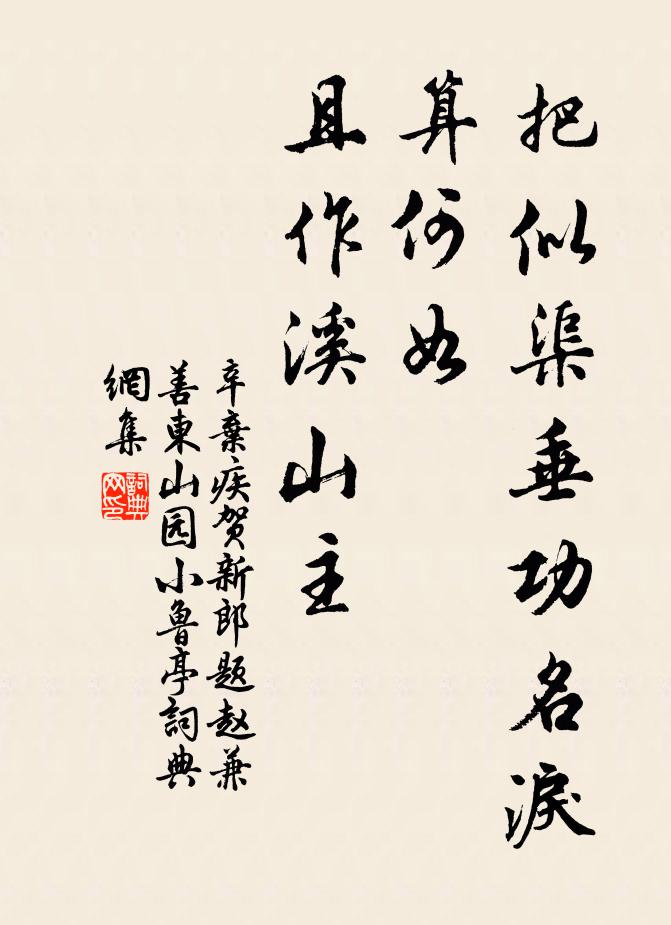 把似渠垂功名淚
算何如
且作溪山主
辛棄疾贺新郎题赵兼
善東山园小魯亭詞典
網集
詞典
网印